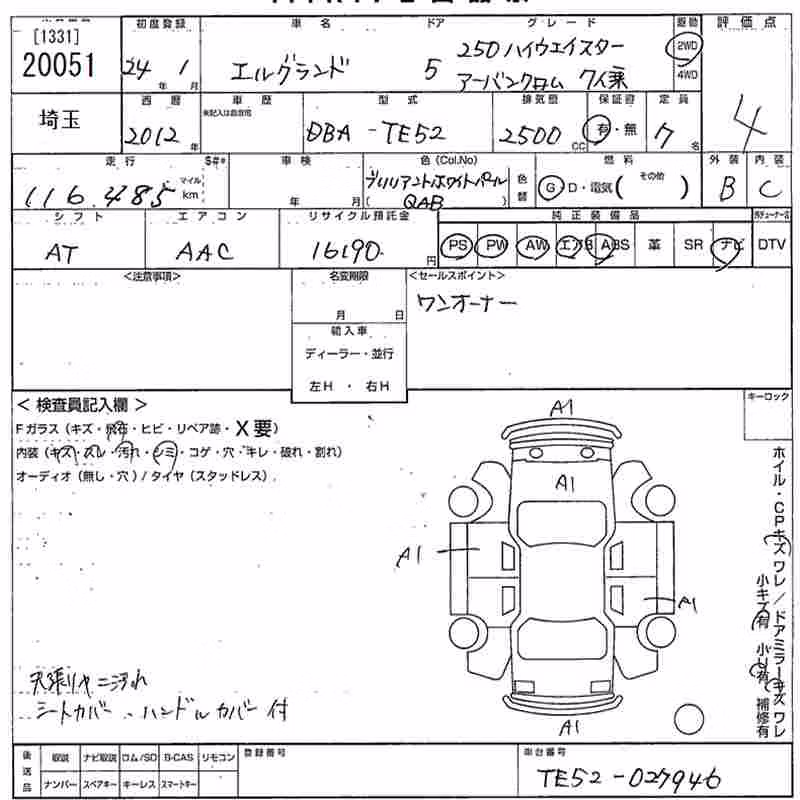 [1331]
20051
初度登録
24年 1月
車名
エルグランド
ドア
5
グレード
250 ハイウエイスター
アーバンクロム 7人乗
駆動
2WD
4WD
評価点
4
埼玉
西暦
2012年
車歴
未記入は自家用
型式
DBA - TE52
排気量
2500 CC
保証書
有・無
定員
7名
走行
116,485
マイル
km
S#*
車検
年 月
色 (Col.No)
ブリリアントホワイトパール
( QAB )
色替
燃料
G D・電気( その他 )
外装
B
内装
C
シフト
AT
エアコン
AAC
リサイクル預託金
16190 円
純正装備品
PS PW AW エアB ABS 革 SR ナビ DTV
<注意事項>
名変期限
月 日
輸入車
ディーラー・並行
左H ・ 右H
<セールスポイント>
ワンオーナー
< 検査員記入欄 >
Fガラス (キズ・飛石・ヒビ・リペア跡・X要)
内装 (キズ・スレ・汚れ・シミ・コゲ・穴・キレ・破れ・割れ)
オーディオ (無し・穴) / タイヤ (スタッドレス)
キーロック
A1
A1
A1
A1
A1
ホイル・CPキズ ワレ / ドアミラーキズ ワレ
小キズ有 小U有 補修有
天張リヤニ汚れ
シートカバー、ハンドルカバー付
後送品
取説 ナビ取説 ロム/SD B-CAS リモコン
ナンバー スペアキー キーレス スマートキー
登録番号
車台番号
TE52-027946